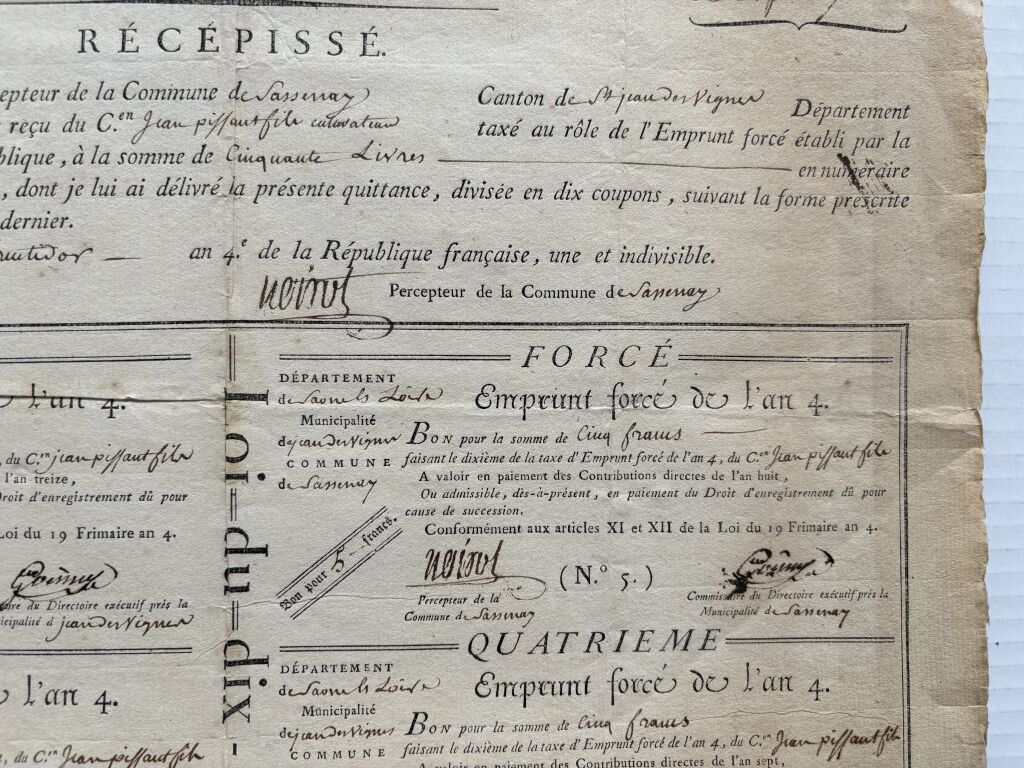 RÉCÉPISSÉ.
epteur de la Commune de Sassenay Canton de St jean des Vignes Département
reçu du C.en Jean pissaut fils cultivateur taxé au rôle de l'Emprunt forcé établi par la
blique, à la somme de Cinquante Livres en numéraire
, dont je lui ai délivré la présente quittance, divisée en dix coupons, suivant la forme prescrite
dernier.
an 4.e de la République française, une et indivisible.
Percepteur de la Commune de Sassenay
l'an 4.
, du C.en jean pissaut fils
l'an treize,
Droit d'enregistrement dû pour
Loi du 19 Frimaire an 4.
aire du Directoire exécutif près la
icipalité d jean des Vignes
l'an 4.
, du C.en Jean pissaut fils
dix du dix
FORCÉ
DÉPARTEMENT
de Saone & Loire
Municipalité
de jean des Vignes
COMMUNE
de Sassenay
Bon pour 5 francs.
Emprunt forcé de l'an 4.
BON pour la somme de Cinq francs
faisant le dixième de la taxe d'Emprunt forcé de l'an 4, du C.en Jean pissaut fils
A valoir en paiement des Contributions directes de l'an huit,
Ou admissible, dès-à-présent, en paiement du Droit d'enregistrement dû pour
cause de succession.
Conformément aux articles XI et XII de la Loi du 19 Frimaire an 4.
(N.o 5.)
Percepteur de la
Commune de Sassenay
Commissaire du Directoire exécutif près la
Municipalité de Sassenay
QUATRIEME
DÉPARTEMENT
de Saone & Loire
Municipalité
de jean des Vignes
COMMUNE
Emprunt forcé de l'an 4.
BON pour la somme de Cinq francs
faisant le dixième de la taxe d'Emprunt forcé de l'an 4, du C.en Jean pissaut fils
A valoir en paiement des Contributions directes de l'an sept,